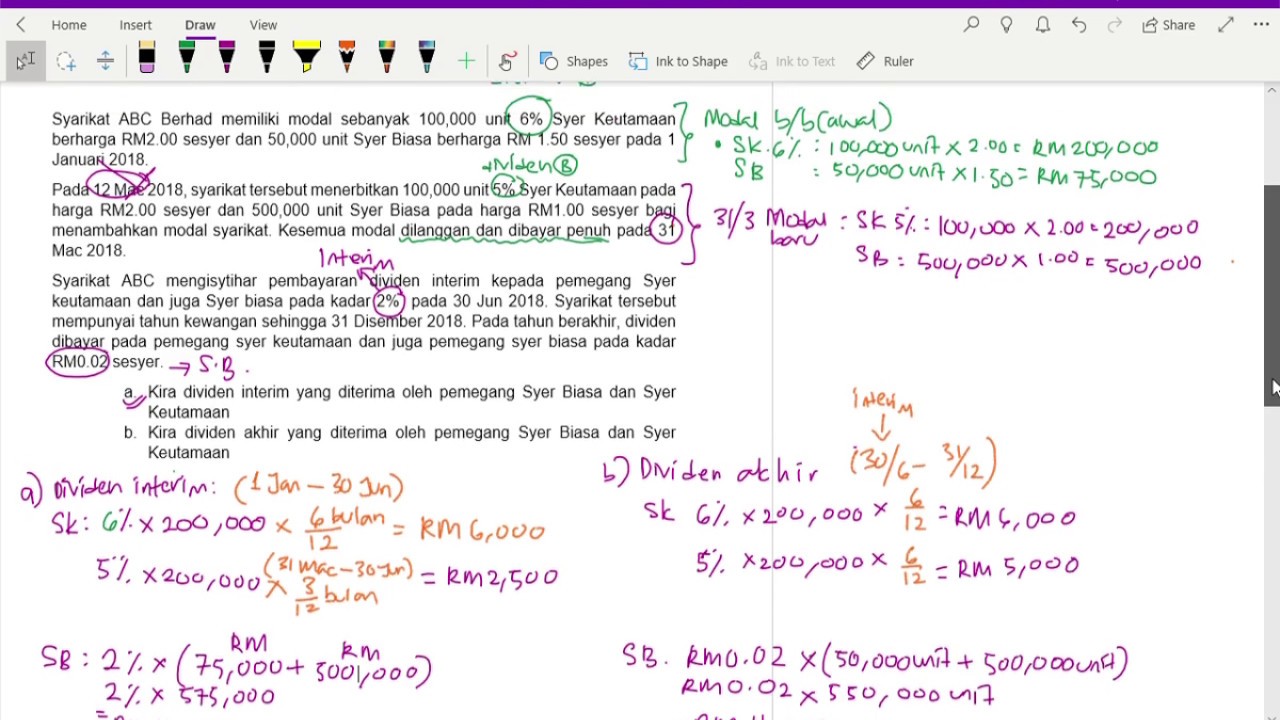 Home Insert Draw View
Share
Shapes Ink to Shape Ink to Text Ruler
Syarikat ABC Berhad memiliki modal sebanyak 100,000 unit 6% Syer Keutamaan
berharga RM2.00 sesyer dan 50,000 unit Syer Biasa berharga RM 1.50 sesyer pada 1
Januari 2018.
dividen B
Pada 12 Mac 2018, syarikat tersebut menerbitkan 100,000 unit 5% Syer Keutamaan pada
harga RM2.00 sesyer dan 500,000 unit Syer Biasa pada harga RM1.00 sesyer bagi
menambahkan modal syarikat. Kesemua modal dilanggan dan dibayar penuh pada 31
Mac 2018.
Interim
Syarikat ABC mengisytihar pembayaran dividen interim kepada pemegang Syer
keutamaan dan juga Syer biasa pada kadar 2% pada 30 Jun 2018. Syarikat tersebut
mempunyai tahun kewangan sehingga 31 Disember 2018. Pada tahun berakhir, dividen
dibayar pada pemegang syer keutamaan dan juga pemegang syer biasa pada kadar
RM0.02 sesyer. → S.B.
a. Kira dividen interim yang diterima oleh pemegang Syer Biasa dan Syer
Keutamaan
b. Kira dividen akhir yang diterima oleh pemegang Syer Biasa dan Syer
Keutamaan
Modal b/b (awal)
• SK 6% : 100,000 unit × 2.00 = RM200,000
SB : 50,000 unit × 1.50 = RM75,000
31/3 Modal baru : SK 5% : 100,000 × 2.00 = 200,000
SB : 500,000 × 1.00 = 500,000
a) Dividen interim: (1 Jan – 30 Jun)
SK: 6% × 200,000 × 6 bulan/12 = RM6,000
(31 Mac – 30 Jun)
5% × 200,000 × 3/12 bulan = RM2,500
RM RM
SB : 2% × (75,000 + 500,000)
2% × 575,000
Interim
b) Dividen akhir (30/6 – 31/12)
SK 6% × 200,000 × 6/12 = RM6,000
5% × 200,000 × 6/12 = RM 5,000
SB. RM0.02 × (50,000 unit + 500,000 unit)
RM0.02 × 550,000 unit